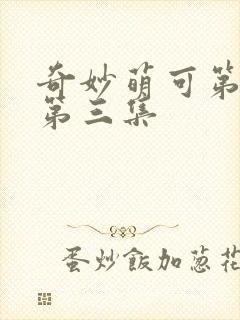 奇妙萌可第
第三集
蛋炒飯加葱花